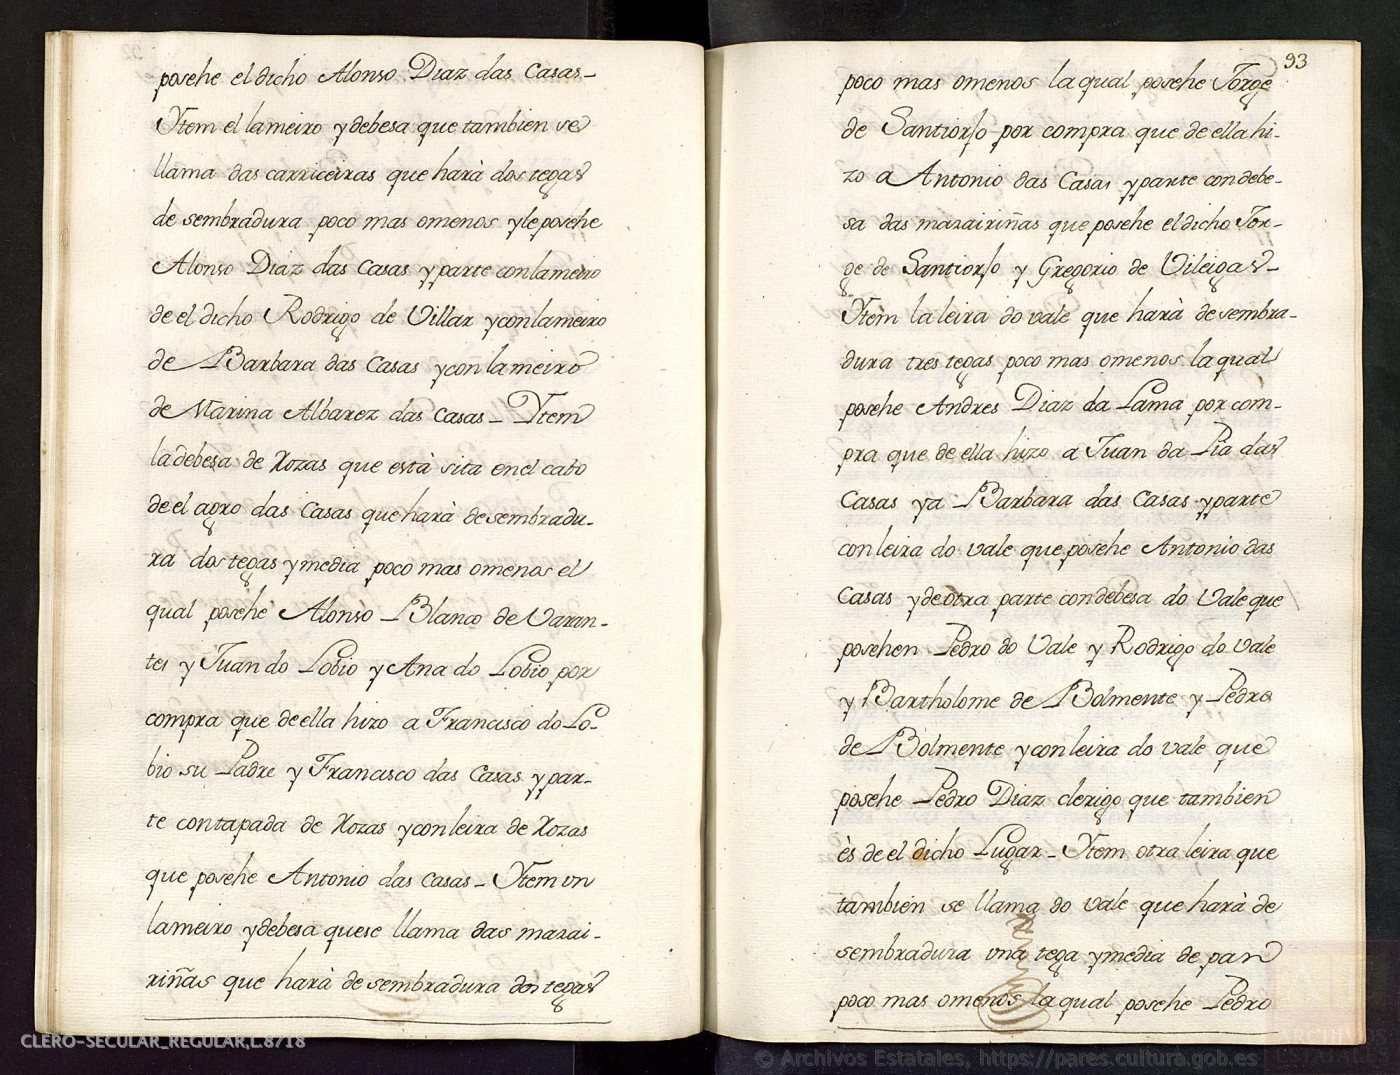 posehe el dicho Alonso Diaz das Casas_
Ytem el lameiro y debesa que tambien se
llama das carriceiras que harà dos tegas
de sembradura poco mas omenos y le posehe
Alonso Diaz das Casas y parte con lameiro
de el dicho Rodrigo de Villar y con lameiro
de Barbara das Casas y con lameiro
de Marina Albarez das Casas_ Ytem
la debesa de Xozas que està sita en el cabo
de el agro das Casas que harà de sembradu-
ra dos tegas y media poco mas omenos el
qual posehe Alonso Blanco de Varin-
tes y Juan do Lobio y Ana do Lobio por
compra que de ella hizo a Francisco do Lo-
bio su Padre y Francisco das Casas y par-
te con tapada de Xozas y con leira de Xozas
que posehe Antonio das Casas_ Ytem vn
lameiro y debesa que se llama das marai-
riñas que harà de sembradura dos tegas
93
poco mas omenos la qual posehe Jorge
de Santiorjo por compra que de ella hi-
zo a Antonio das Casas y parte con debe-
sa das marairiñas que posehe el dicho Jor-
ge de Santiorjo y Gregorio de Vileigas_
Ytem la leira do vale que harà de sembra-
dura tres tegas poco mas omenos la qual
posehe Andres Diaz da Lama por com-
pra que de ella hizo a Juan da Pia das
Casas y a Barbara das Casas y parte
con leira do vale que posehe Antonio das
Casas y de otra parte con debesa do Vale que
posehen Pedro do Vale y Rodrigo do Vale
y Bartholome de Bolmente y Pedro
de Bolmente y con leira do vale que
posehe Pedro Diaz clerigo que tambien
ès de el dicho Lugar_ Ytem otra leira que
tambien se llama do vale que harà de
sembradura una tega y media de pan
poco mas omenos la qual posehe Pedro
CLERO-SECULAR_REGULAR,L.8718
© Archivos Estatales, https://pares.cultura.gob.es
ARCHIVOS
ESTATALES